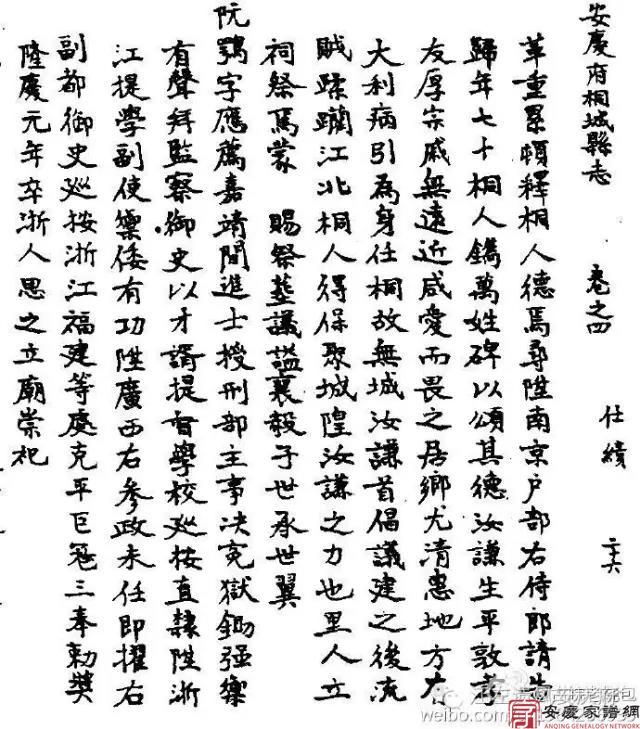 安慶府桐城縣志　卷之四　仕績　二十六
革重累頼釋桐人德焉尋陞南京戶部右侍郎請告
歸年七十桐人鐫萬姓碑以頌其德汝謙生平敦孝
友厚宗戚無遠近咸愛而畏之居鄉尤清惠地方有
大利病引為身任桐故無城汝謙首倡議建之後流
賊蹂躪江北桐人得保聚城隍汝謙之力也里人立
祠祭焉蒙　賜祭塟議諡襄毅子世承世翼
阮鶚字應薦嘉靖間進士授刑部主事決冤獄鋤强禦
有聲拜監察御史以才諝提督學校巡按直隸陞浙
江提學副使禦倭有功陞廣西右參政未任即擢右
副都御史巡按浙江福建等處克平巨寇三奉勅獎
隆慶元年卒浙人思之立廟崇祀
weibo.com/
安慶家譜網
ANQING GENEALOGY NETWORK